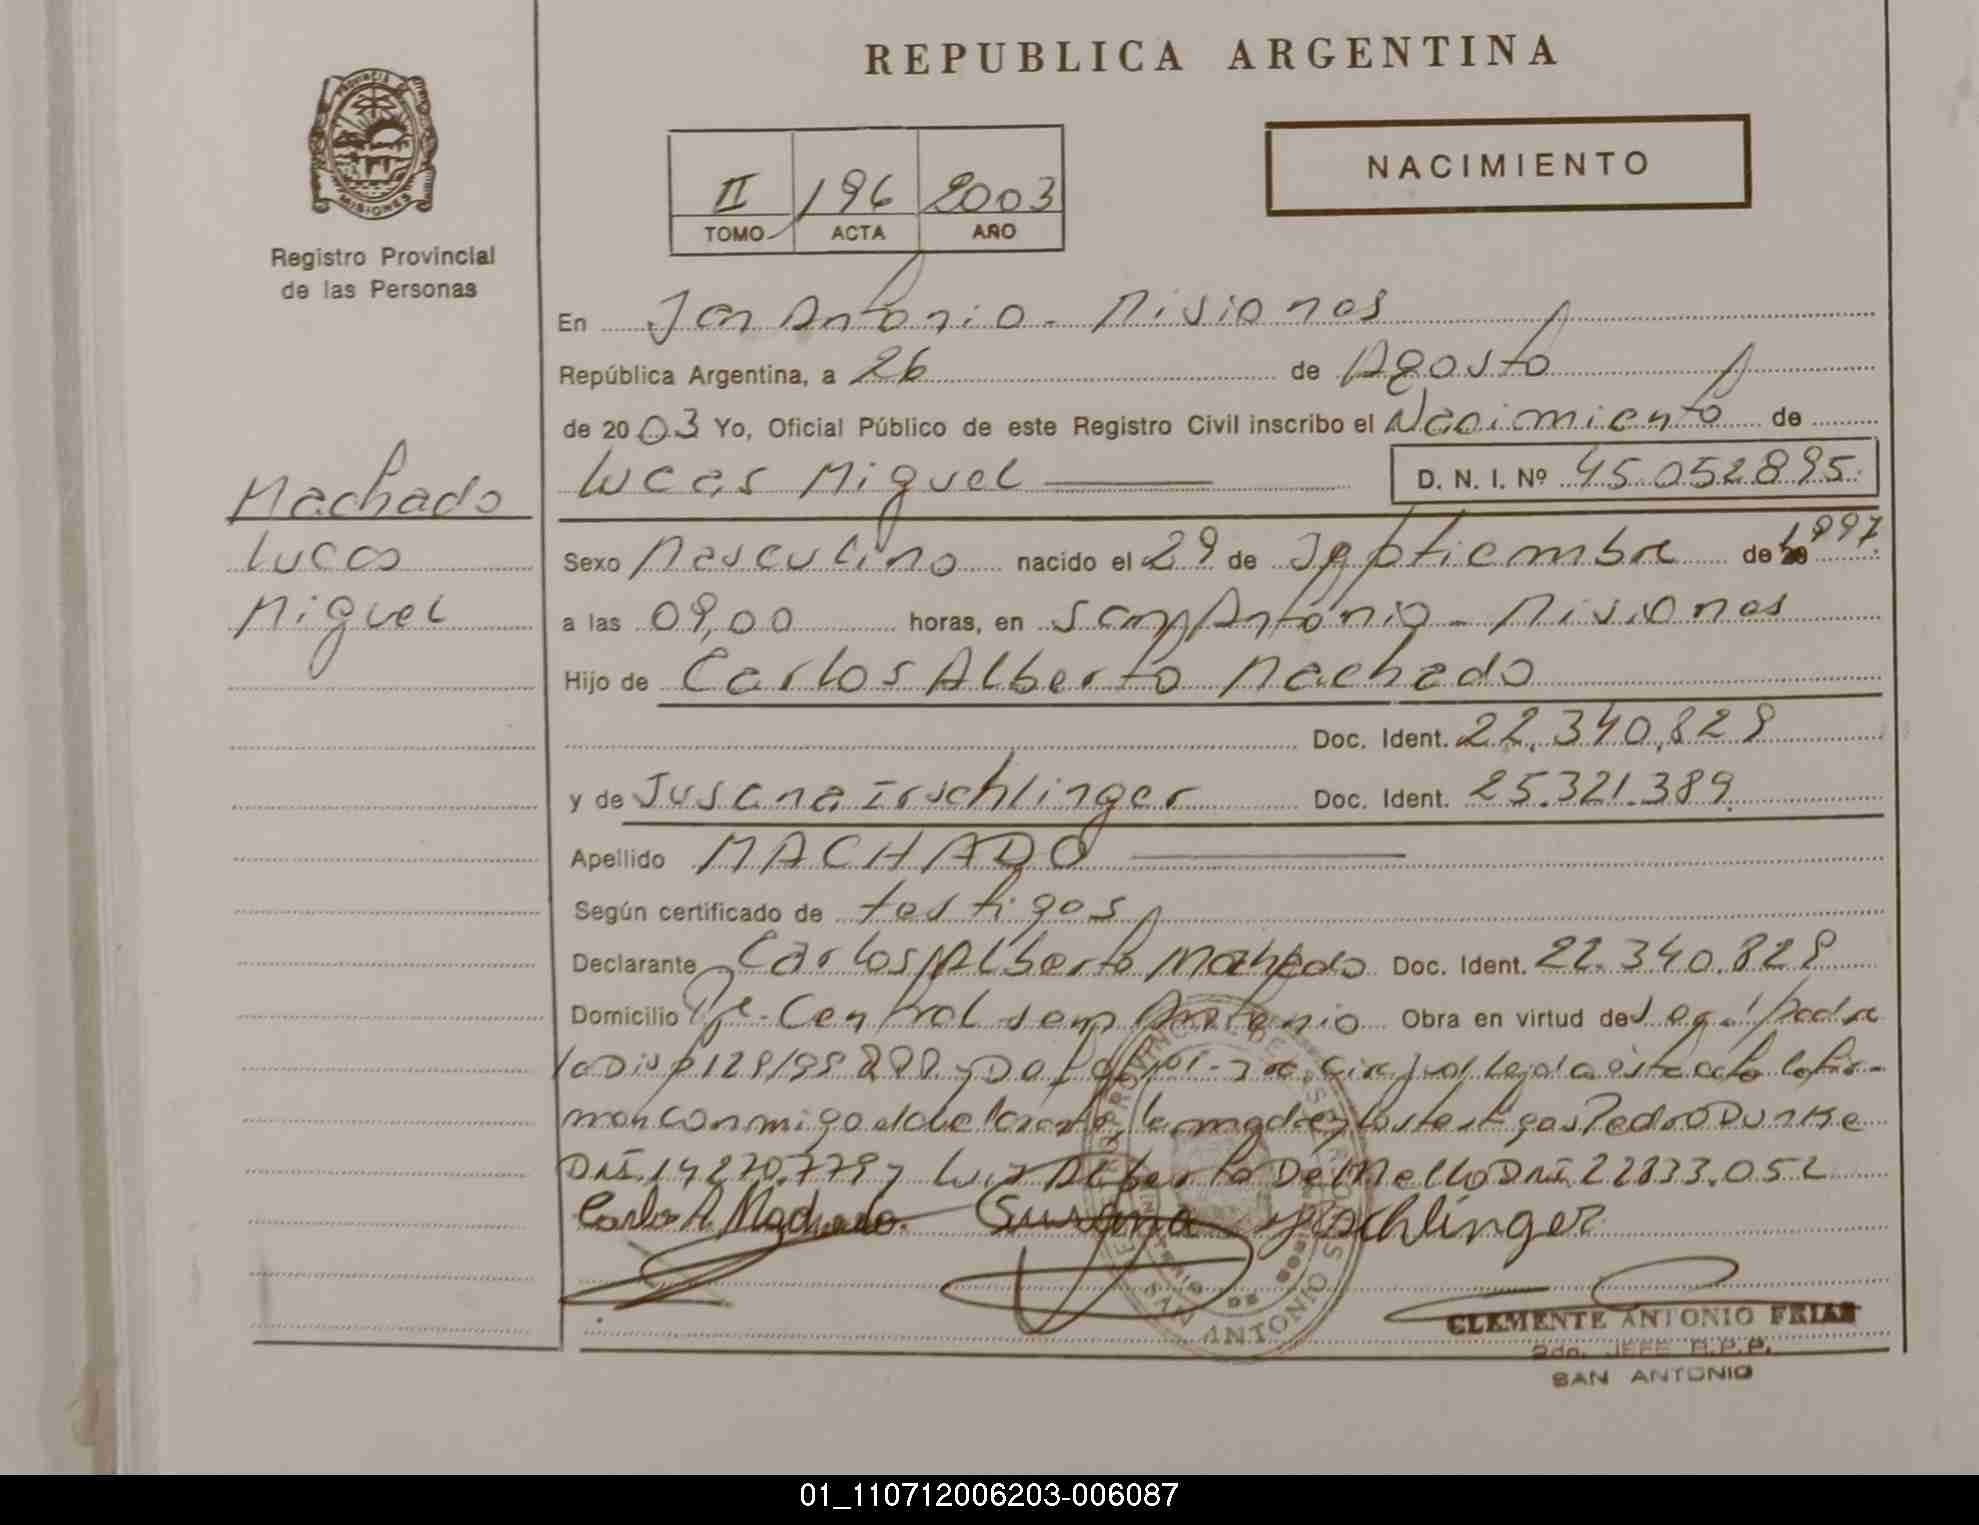 REPUBLICA ARGENTINA
PROVINCIA
MISIONES
Registro Provincial
de las Personas
NACIMIENTO
II 196 2003
TOMO ACTA AÑO
En San Antonio - Misiones
República Argentina, a 26 de Agosto
de 2003 Yo, Oficial Público de este Registro Civil inscribo el Nacimiento de
Lucas Miguel D. N. I. Nº 45.052.895
Machado
Lucas
Miguel
Sexo Masculino nacido el 29 de Septiembre de 1997
a las 09,00 horas, en San Antonio - Misiones
Hijo de Carlos Alberto Machado
Doc. Ident. 22.340.829
y de Susana Irschlinger Doc. Ident. 25.321.389
Apellido MACHADO
Según certificado de testigos
Declarante Carlos Alberto Machado Doc. Ident. 22.340.829
Domicilio Central San Antonio Obra en virtud de
la firman
conmigo el declarante, la madre y los testigos Pedro Dunke
DNI. 14.270.779 y Luis Alberto De Mello DNI. 22833.052
Carlos A. Machado. Susana Irschlinger
SAN ANTONIO
CLEMENTE ANTONIO FRIAS
2do. JEFE R.P.P.
SAN ANTONIO
01_110712006203-006087